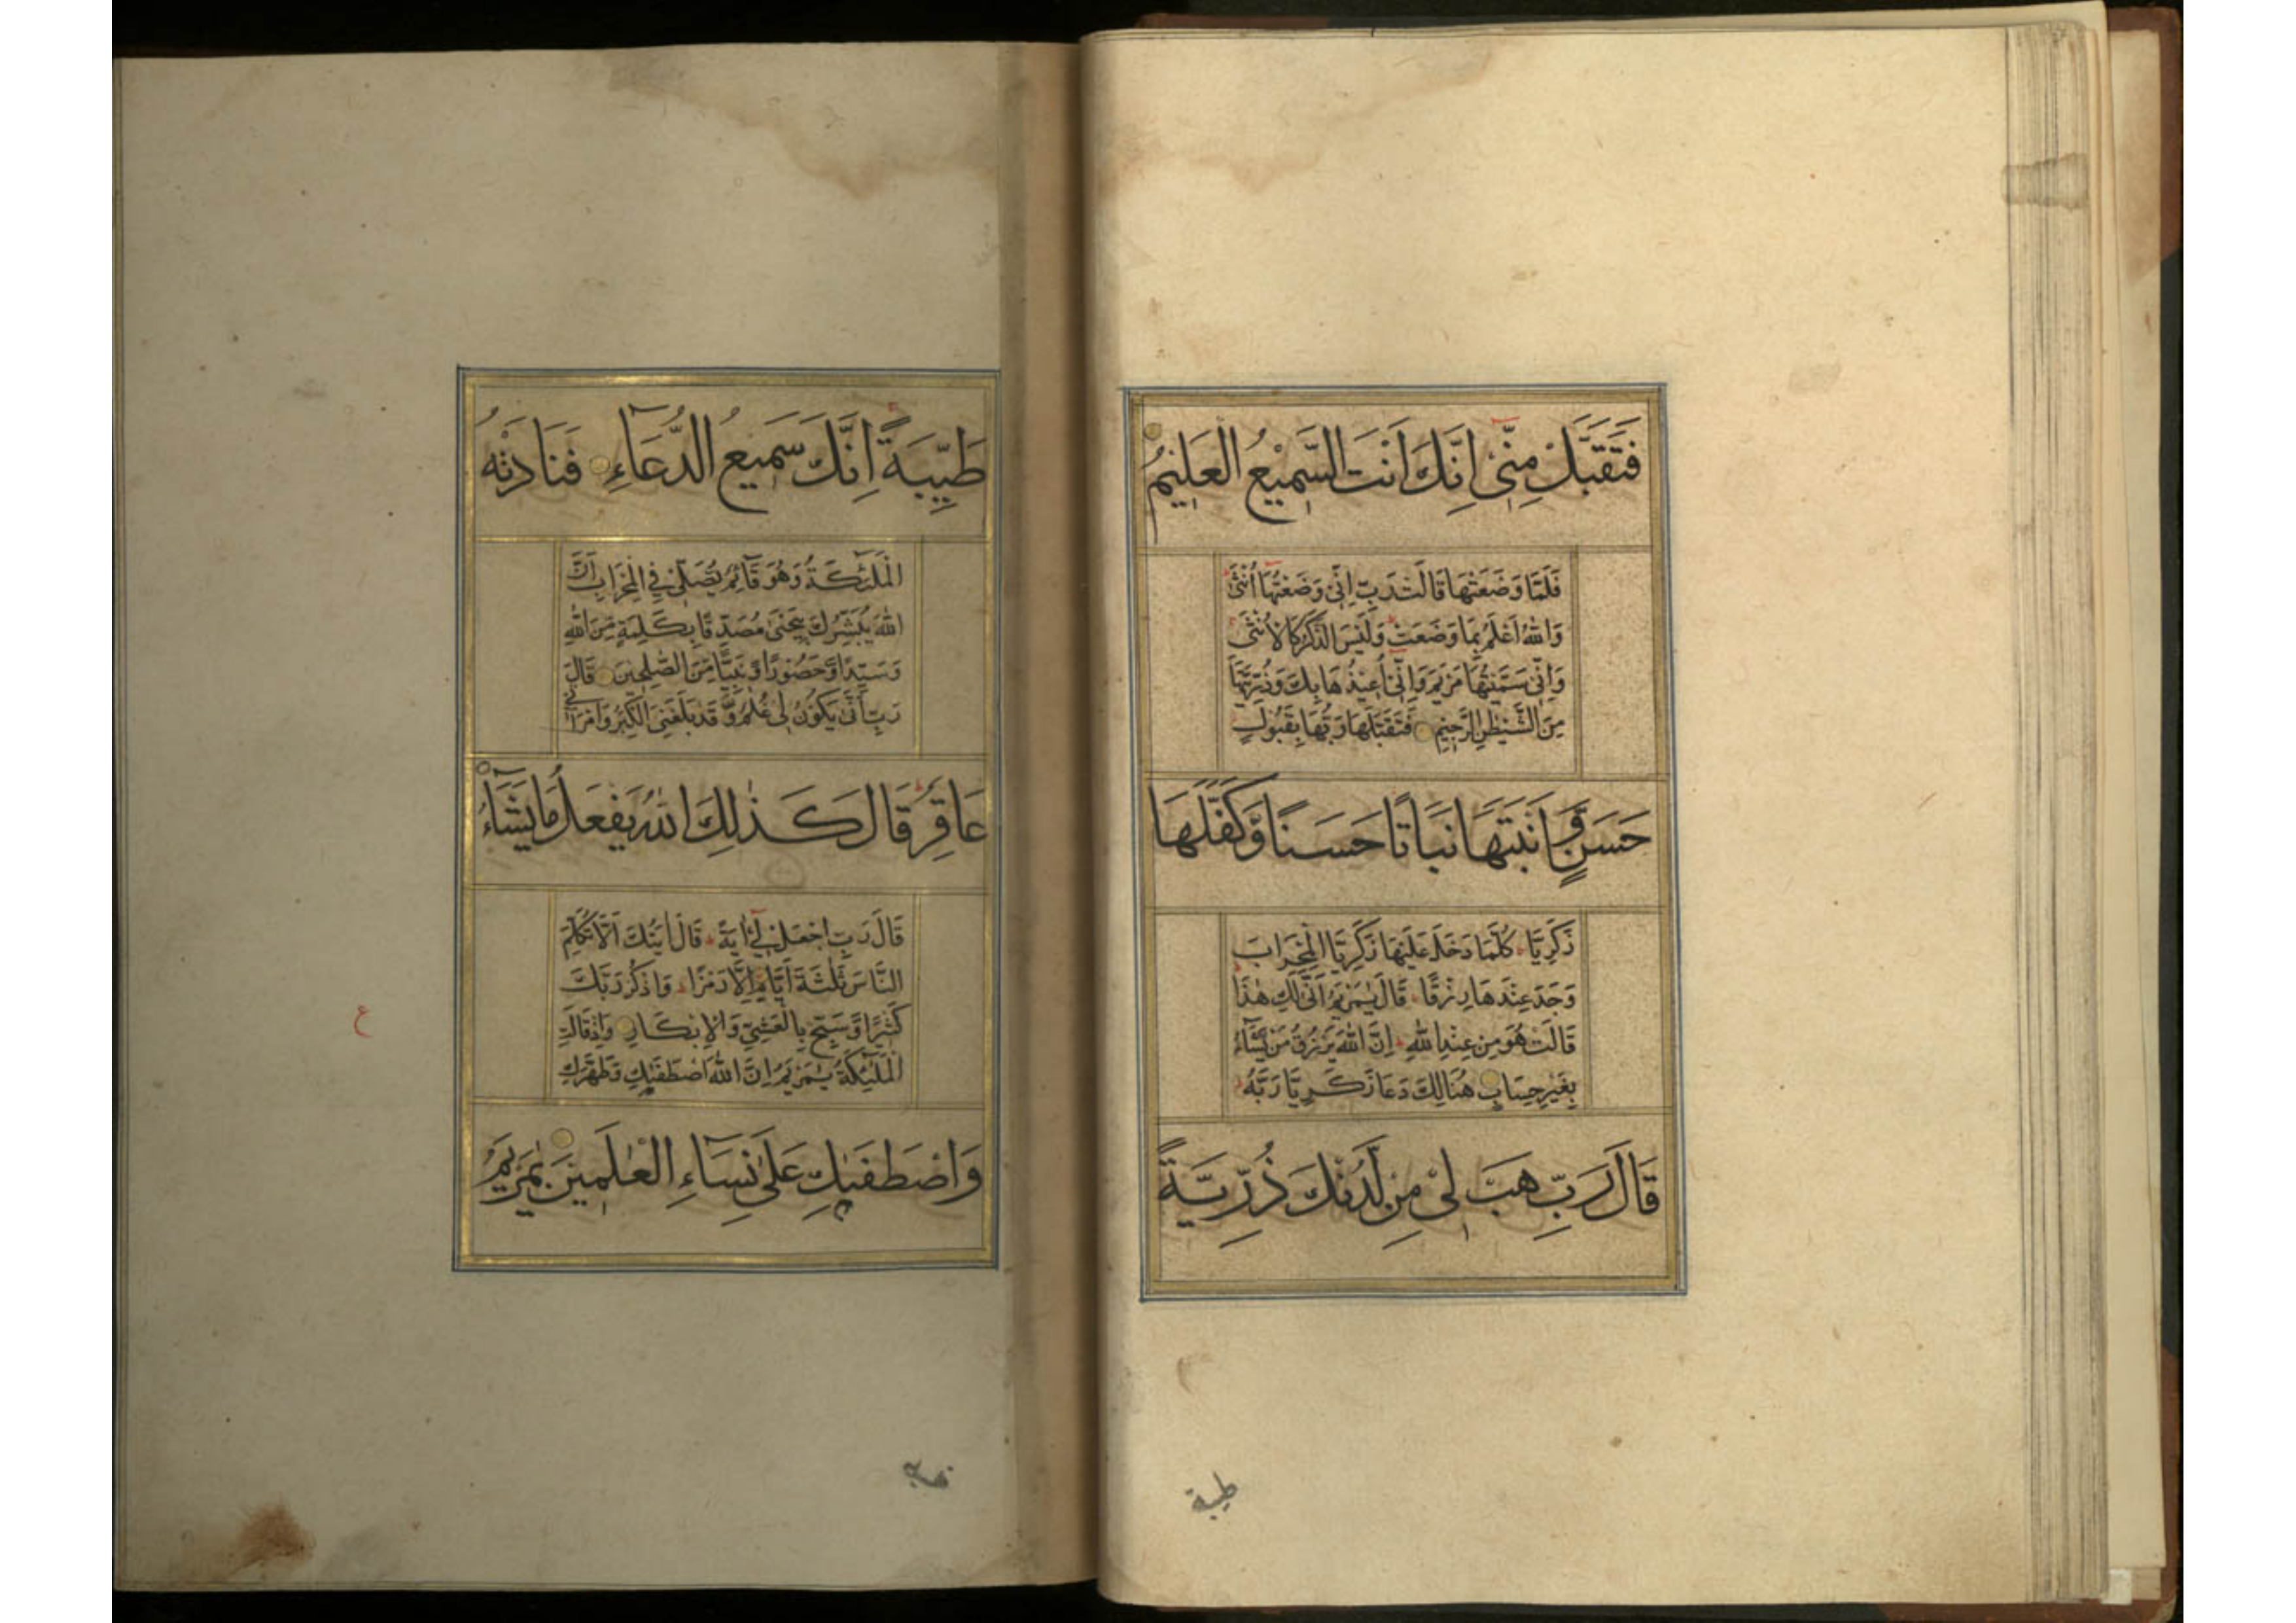 فَتَقَبَّلْ مِنِّيْ اِنَّكَ اَنْتَ السَّمِيْعُ الْعَلِيْمُ
فَلَمَّا وَضَعَتْهَا قَالَتْ رَبِّ اِنِّيْ وَضَعْتُهَا اُنْثٰى
وَاللّٰهُ اَعْلَمُ بِمَا وَضَعَتْ وَلَيْسَ الذَّكَرُ كَالْاُنْثٰى
وَاِنِّيْ سَمَّيْتُهَا مَرْيَمَ وَاِنِّيْ اُعِيْذُهَا بِكَ وَذُرِّيَّتَهَا
مِنَ الشَّيْطٰنِ الرَّجِيْمِ فَتَقَبَّلَهَا رَبُّهَا بِقَبُوْلٍ
حَسَنٍ وَّاَنْبَتَهَا نَبَاتًا حَسَنًا وَّكَفَّلَهَا
زَكَرِيَّا كُلَّمَا دَخَلَ عَلَيْهَا زَكَرِيَّا الْمِحْرَابَ
وَجَدَ عِنْدَهَا رِزْقًا قَالَ يٰمَرْيَمُ اَنّٰى لَكِ هٰذَا
قَالَتْ هُوَ مِنْ عِنْدِ اللّٰهِ اِنَّ اللّٰهَ يَرْزُقُ مَنْ يَّشَآءُ
بِغَيْرِ حِسَابٍ هُنَالِكَ دَعَا زَكَرِيَّا رَبَّهُ
قَالَ رَبِّ هَبْ لِيْ مِنْ لَّدُنْكَ ذُرِّيَّةً
طيبة
طَيِّبَةً اِنَّكَ سَمِيْعُ الدُّعَآءِ فَنَادَتْهُ
الْمَلٰٓئِكَةُ وَهُوَ قَآئِمٌ يُّصَلِّيْ فِي الْمِحْرَابِ اَنَّ
اللّٰهَ يُبَشِّرُكَ بِيَحْيٰى مُصَدِّقًا بِكَلِمَةٍ مِّنَ اللّٰهِ
وَسَيِّدًا وَّحَصُوْرًا وَّنَبِيًّا مِّنَ الصّٰلِحِيْنَ قَالَ
رَبِّ اَنّٰى يَكُوْنُ لِيْ غُلٰمٌ وَّقَدْ بَلَغَنِيَ الْكِبَرُ وَامْرَاَتِيْ
عَاقِرٌ قَالَ كَذٰلِكَ اللّٰهُ يَفْعَلُ مَا يَشَآءُ
قَالَ رَبِّ اجْعَلْ لِّيْٓ اٰيَةً قَالَ اٰيَتُكَ اَلَّا تُكَلِّمَ
النَّاسَ ثَلٰثَةَ اَيَّامٍ اِلَّا رَمْزًا وَاذْكُرْ رَّبَّكَ
كَثِيْرًا وَّسَبِّحْ بِالْعَشِيِّ وَالْاِبْكَارِ وَاِذْ قَالَتِ
الْمَلٰٓئِكَةُ يٰمَرْيَمُ اِنَّ اللّٰهَ اصْطَفٰىكِ وَطَهَّرَكِ
ع
وَاصْطَفٰىكِ عَلٰى نِسَآءِ الْعٰلَمِيْنَ يٰمَرْيَمُ